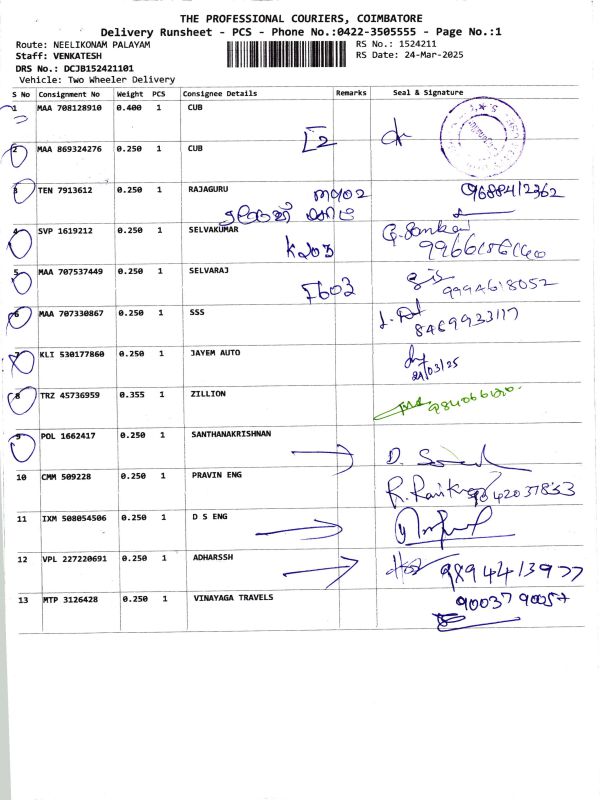 THE PROFESSIONAL COURIERS, COIMBATORE
Delivery Runsheet - PCS - Phone No.:0422-3505555 - Page No.:1
Route: NEELIKONAM PALAYAM
RS No.: 1524211
Staff: VENKATESH
RS Date: 24-Mar-2025
DRS No.: DCJB152421101
Vehicle: Two Wheeler Delivery
S No Consignment No Weight PCS Consignee Details Remarks Seal & Signature
1 MAA 708128910 0.400 1 CUB
2 MAA 869324276 0.250 1 CUB
3 TEN 7913612 0.250 1 RAJAGURU 9688412362
4 SVP 1619212 0.250 1 SELVAKUMAR
K203
5 MAA 707537449 0.250 1 SELVARAJ
F603 9994618052
6 MAA 707330867 0.250 1 SSS
8469933117
7 KLI 530177860 0.250 1 JAYEM AUTO
24/03/25
8 TRZ 45736959 0.355 1 ZILLION
9 POL 1662417 0.250 1 SANTHANAKRISHNAN
10 CMM 509228 0.250 1 PRAVIN ENG
11 IXM 508054506 0.250 1 D S ENG
12 VPL 227220691 0.250 1 ADHARSSH 9894413977
13 MTP 3126428 0.250 1 VINAYAGA TRAVELS 9003790057